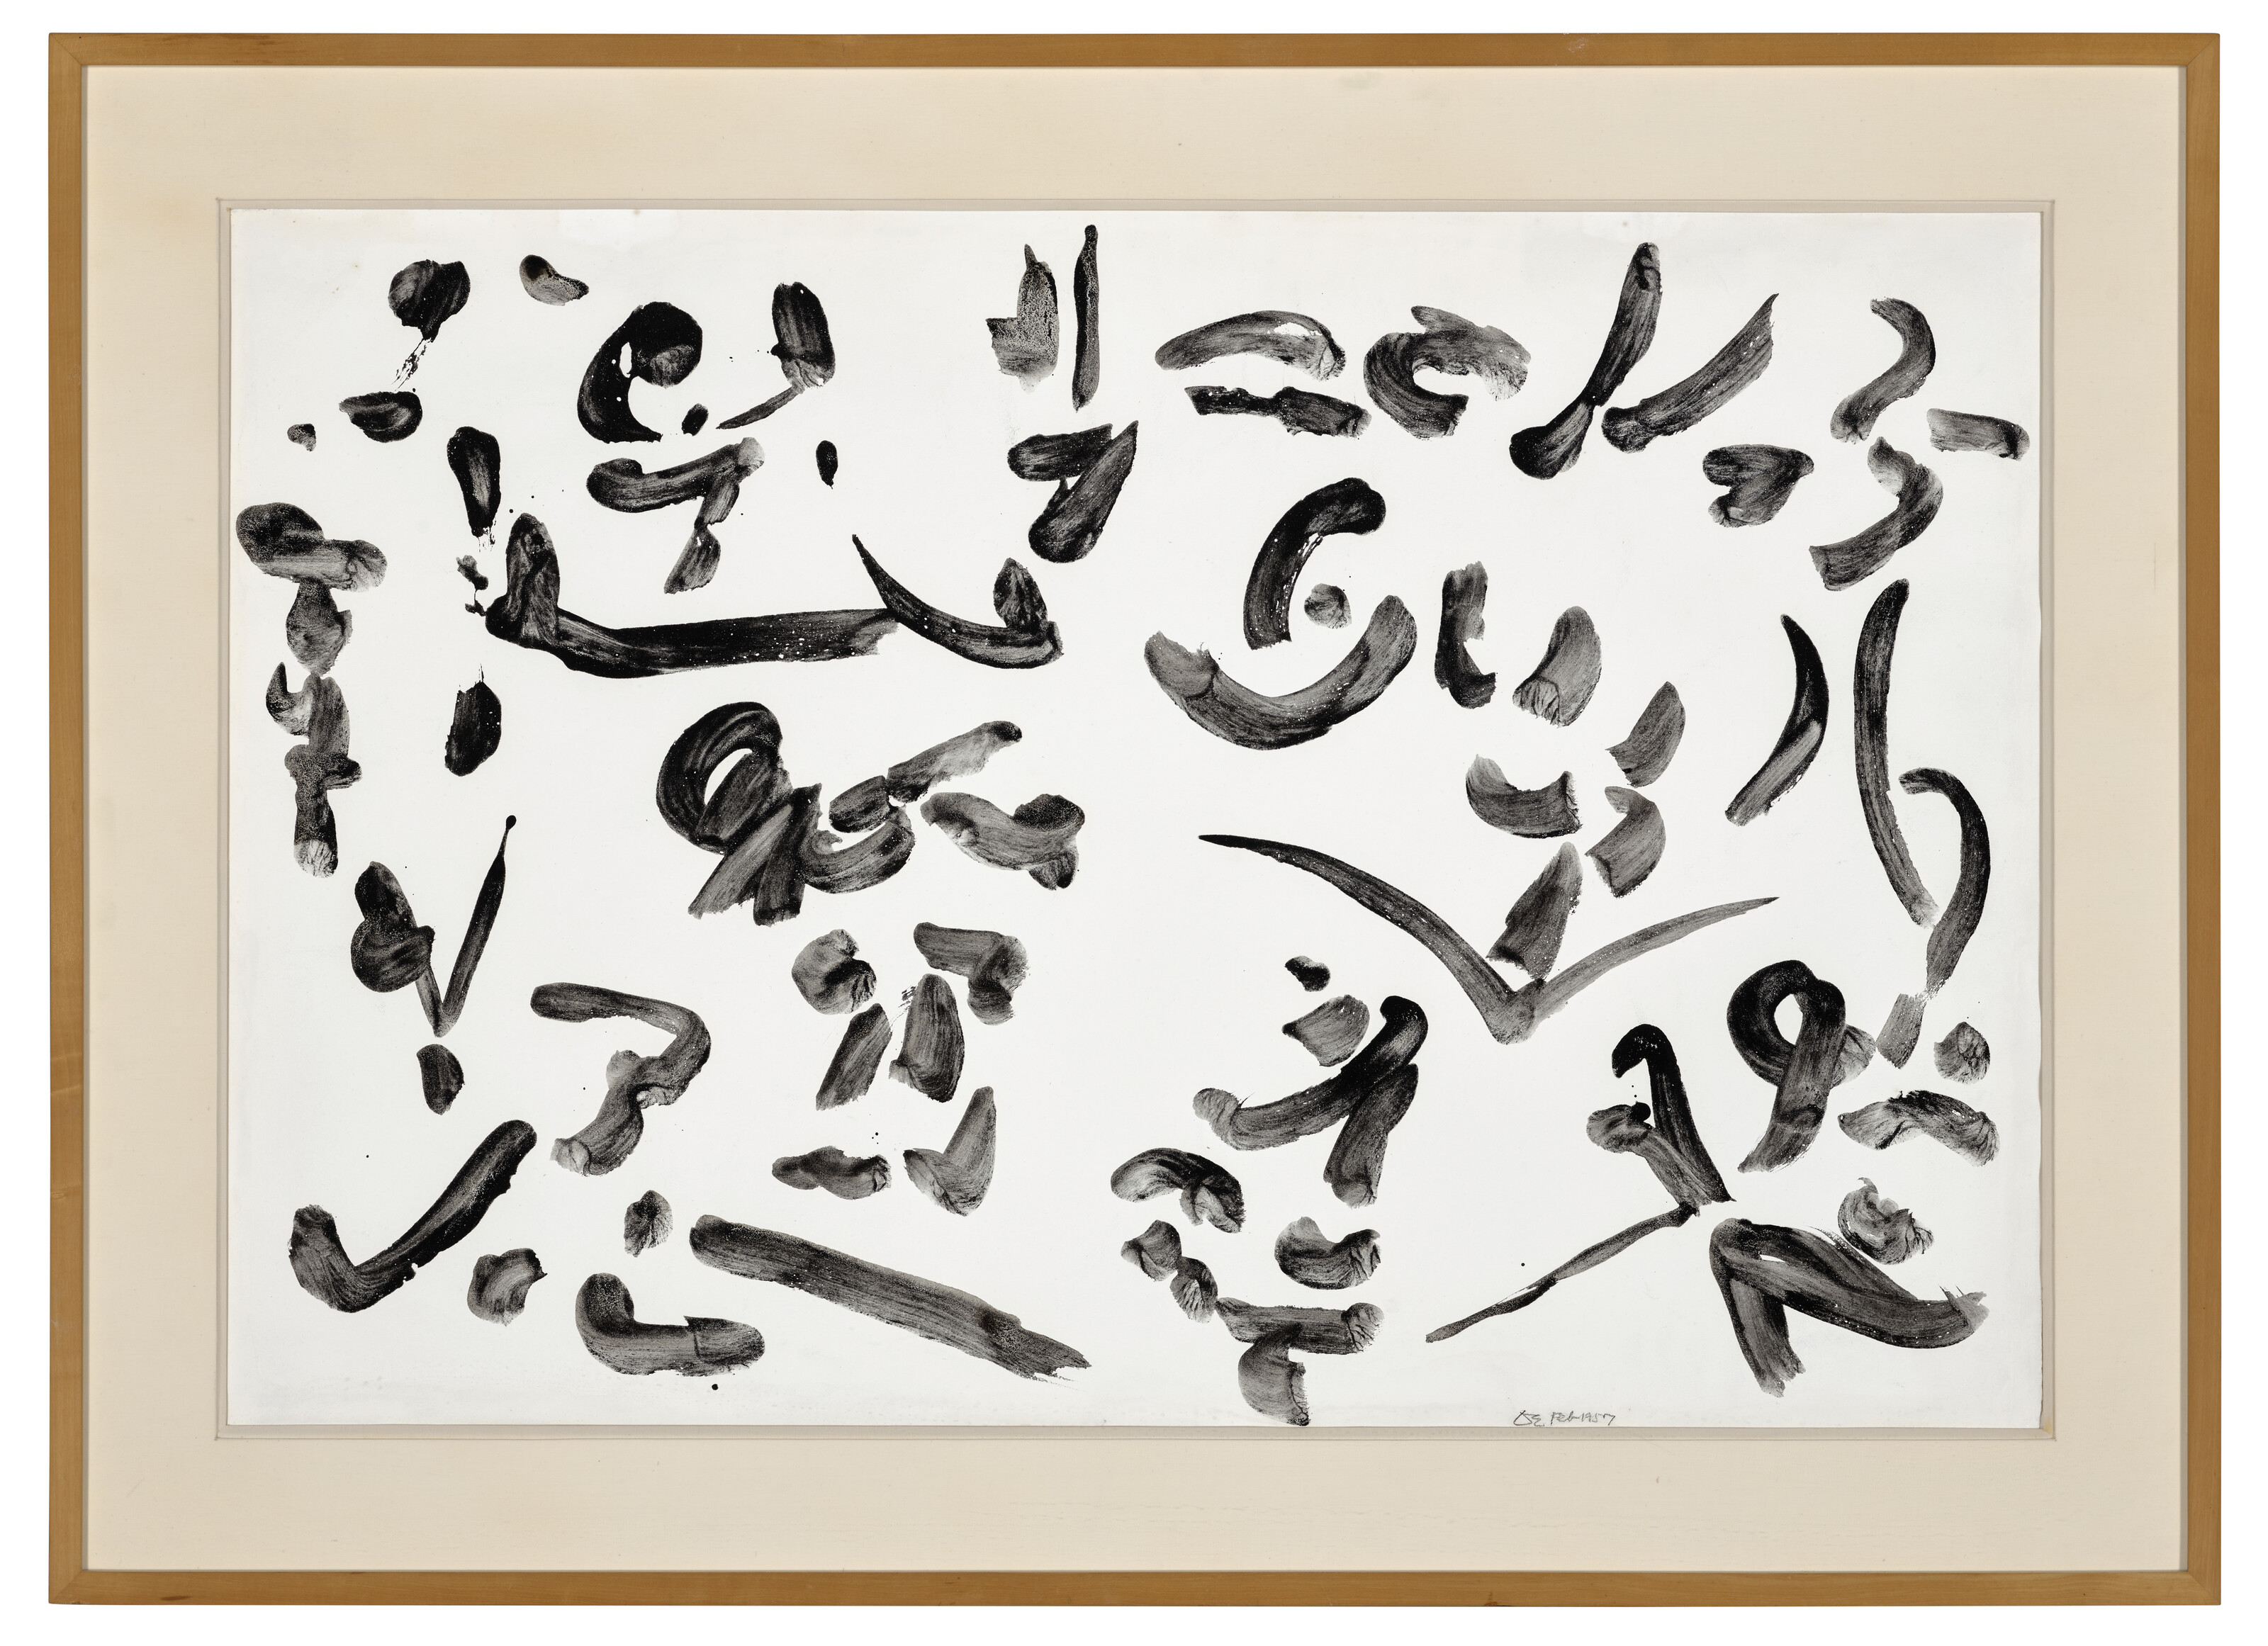 Feb 1957